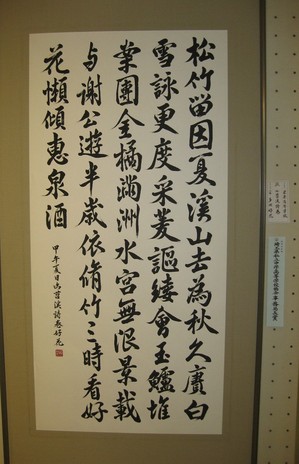 松竹留因夏溪山去為秋久賡白
雪詠更度采菱謳縷會玉鱸堆
案團金橘滿洲水宮無限景載
与謝公遊半歲依脩竹三時看好
花懶傾惠泉酒
甲午夏日臨苕溪詩卷